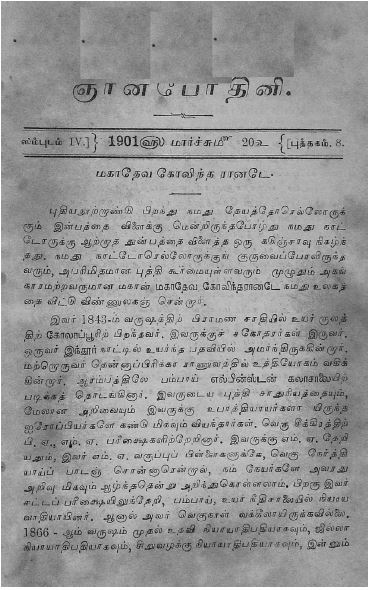 ஞானபோதினி.
ஸம்புடம் IV.] 1901௵ மார்ச்சுமீ 20௳ [புத்தகம். 8.
மகாதேவ கோவிந்த ரானடே.
புதியநூற்றாண்டு பிறந்து நமது தேயத்தோரெல்லோருக்
கும் இன்பத்தை விளைக்கு மென்றிருந்தபோது நமது நாட்
டோருக்கு ஆற்றாத துன்பத்தை விளைத்த ஒரு கடுஞ்சாவு நிகழ்ந்
தது. நமது நாட்டோரெல்லோருக்குங் குருவைப்போலிருந்த
வரும், அபரிமிதமான புத்தி கூர்மையுள்ளவரும் முழுதும் அகங்
காரமற்றவருமான மகான் மகாதேவ கோவிந்தரானடே நமது உலகத்
தை விட்டு விண்ணுலகஞ் சென்றார்.
இவர் 1843-ம் வருஷத்திற் பிராமண சாதியில் உயர் குலத்
திற் கோலாப்பூரிற் பிறந்தவர். இவருக்குச் சகோதரர்கள் இருவர்.
ஒருவர் இந்தூர் நாட்டில் உயர்ந்த பதவியில் அமர்ந்திருக்கின்றார்.
மற்றொருவர் தென்னாப்பிரிக்கா சாணுவத்தில் உத்தியோகம் வகிக்
கின்றார். ஆரம்பத்திலே பம்பாய் எல்பின்ஸ்டன் கலாசாலையிற்
படிக்கத் தொடங்கினார். இவருடைய புத்தி சாதுரியத்தையும்,
மேலான அறிவையும் இவருக்கு உபாத்தியாயர்களா யிருந்த
ஐரோப்பியர்களே கண்டு மிகவும் வியந்தார்கள். வெகு சிக்கிரத்திற்
பி. ஏ., எம். ஏ. பரிக்ஷைகளிற்றேறினார். இவருக்கு எம். ஏ. தேறி
யதும், இவர் எம். ஏ. வகுப்புப் பிள்ளைகளுக்கே, வெகு நேர்த்தி
யாய்ப் பாடஞ் சொன்னாரென்றால், நம் நேயர்களே அவரது
அறிவு மிகவும் ஆழ்ந்ததென்று அறிந்துகொள்ளலாம். பிறகு இவர்
சட்டப் பரிக்ஷையிலுந்தேறி, பம்பாய், உயர் நீதிசாலையில் நியாய
வாதியாயினர். ஆனால் அவர் வெகுநாள் வக்கீலாயிருக்கவில்லை.
1866 - ஆம் வருஷம் முதல் உதவி நியாயாதிபதியாகவும், ஜில்லா
நியாயாதிபதியாகவும், சிறுவழக்கு நியாயாதிபதியாகவும், இன்னும்